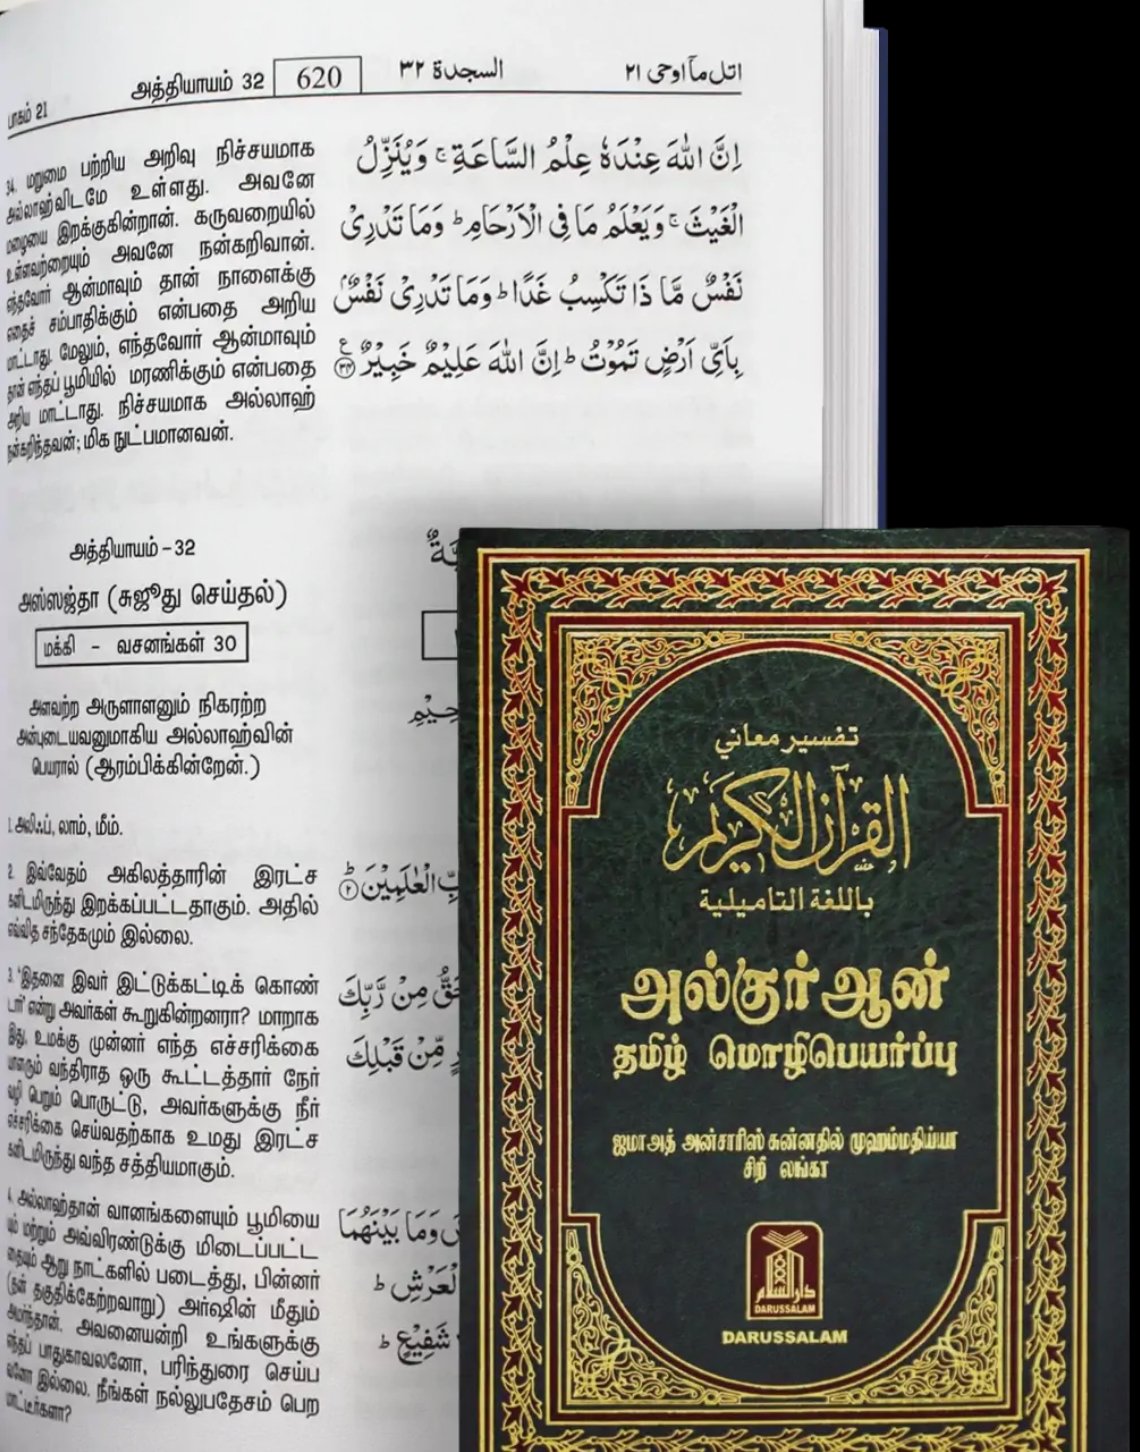 பாகம் 21
அத்தியாயம் 32
620
السجدة ٣٢
اتل مآ اوحى ٢١
34. மறுமை பற்றிய அறிவு நிச்சயமாக
அல்லாஹ்விடமே உள்ளது. அவனே
மழையை இறக்குகின்றான். கருவறையில்
உள்ளவற்றையும் அவனே நன்கறிவான்.
எந்தவோர் ஆன்மாவும் தான் நாளைக்கு
எதைச் சம்பாதிக்கும் என்பதை அறிய
மாட்டாது. மேலும், எந்தவோர் ஆன்மாவும்
தான் எந்தப் பூமியில் மரணிக்கும் என்பதை
அறிய மாட்டாது. நிச்சயமாக அல்லாஹ்
நன்கறிந்தவன்; மிக நுட்பமானவன்.
اِنَّ اللّٰهَ عِنْدَهٗ عِلْمُ السَّاعَةِ ۚ وَيُنَزِّلُ
الْغَيْثَ ۚ وَيَعْلَمُ مَا فِي الْاَرْحَامِ ؕ وَمَا تَدْرِيْ
نَفْسٌ مَّا ذَا تَكْسِبُ غَدًا ؕ وَمَا تَدْرِيْ نَفْسٌۢ
بِاَيِّ اَرْضٍ تَمُوْتُ ؕ اِنَّ اللّٰهَ عَلِيْمٌ خَبِيْرٌ ٣٤
அத்தியாயம் – 32
அஸ்ஸஜ்தா (சுஜூது செய்தல்)
மக்கி - வசனங்கள் 30
அளவற்ற அருளாளனும் நிகரற்ற
அன்புடையவனுமாகிய அல்லாஹ்வின்
பெயரால் (ஆரம்பிக்கின்றேன்.)
1. அலிஃப், லாம், மீம்.
2. இவ்வேதம் அகிலத்தாரின் இரட்ச
கனிடமிருந்து இறக்கப்பட்டதாகும். அதில்
எவ்வித சந்தேகமும் இல்லை.
3. 'இதனை இவர் இட்டுக்கட்டிக் கொண்
டார்' என்று அவர்கள் கூறுகின்றனரா? மாறாக
இது, உமக்கு முன்னர் எந்த எச்சரிக்கை
யாளரும் வந்திராத ஒரு கூட்டத்தார் நேர்
வழி பெறும் பொருட்டு, அவர்களுக்கு நீர்
எச்சரிக்கை செய்வதற்காக உமது இரட்ச
கனிடமிருந்து வந்த சத்தியமாகும்.
4. அல்லாஹ்தான் வானங்களையும் பூமியை
யும் மற்றும் அவ்விரண்டுக்கு மிடைப்பட்ட
தையும் ஆறு நாட்களில் படைத்து, பின்னர்
(தன் தகுதிக்கேற்றவாறு) அர்ஷின் மீதும்
அமர்ந்தான். அவனையன்றி உங்களுக்கு
எந்தப் பாதுகாவலனோ, பரிந்துரை செய்ப
வனோ இல்லை. நீங்கள் நல்லுபதேசம் பெற
மாட்டீர்களா?
الْعٰلَمِيْنَ ؕ ٢
مِنْ رَّبِّكَ
مِّنْ قَبْلِكَ
وَمَا بَيْنَهُمَا
الْعَرْشِ ؕ
شَفِيْعٍ ؕ
تفسير معاني
القرآن الكريم
باللغة التاميلية
அல்குர்ஆன்
தமிழ் மொழிபெயர்ப்பு
ஜமாஅத் அன்சாரிஸ் சுன்னதில் முஹம்மதிய்யா
சிறீ லங்கா
دار السلام
DARUSSALAM
DARUSSALAM